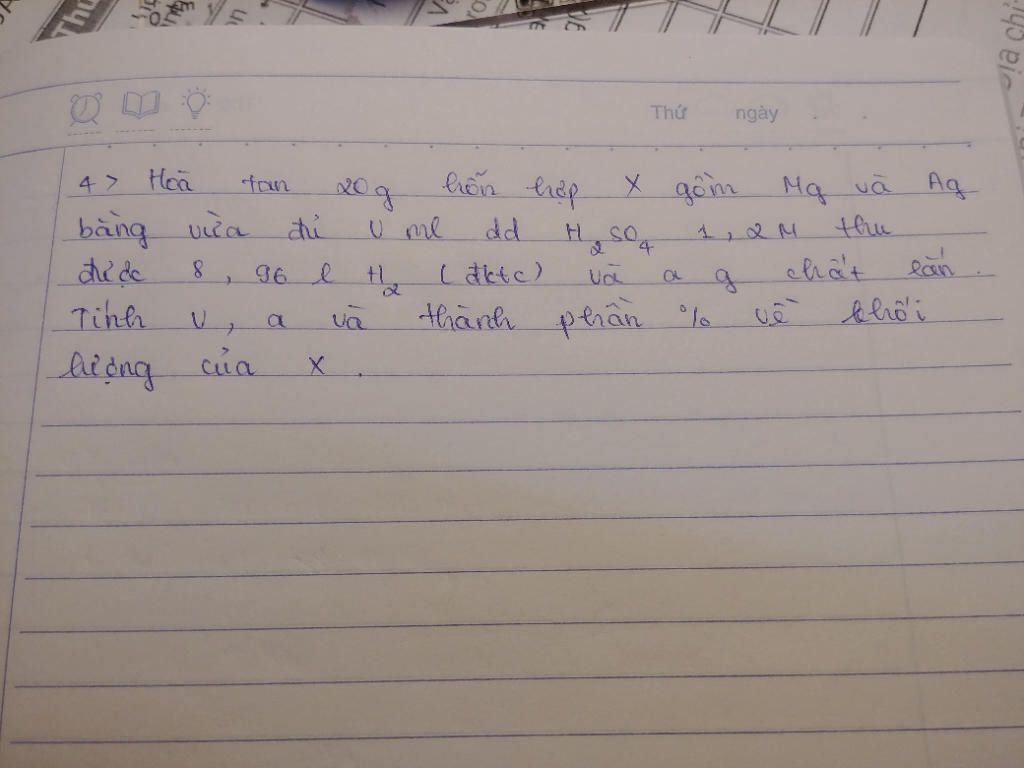 Thứ ngày . .
4> Hoà tan 20g hỗn hợp X gồm Mg và Ag
bằng vừa đủ V ml dd H2SO4 1,2M thu
được 8,96 l H2 (đktc) và a g chất rắn.
Tính V, a và thành phần % về khối
lượng của X.